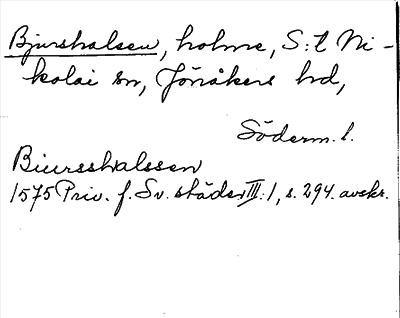 Bjurshalsen, holme, S:t Ni-
kolai sn, Jönåkers hd,
Söderm. l.
Biursshalssen
1575 Priv. f. Sv. städer III:1, s. 294. avskr.